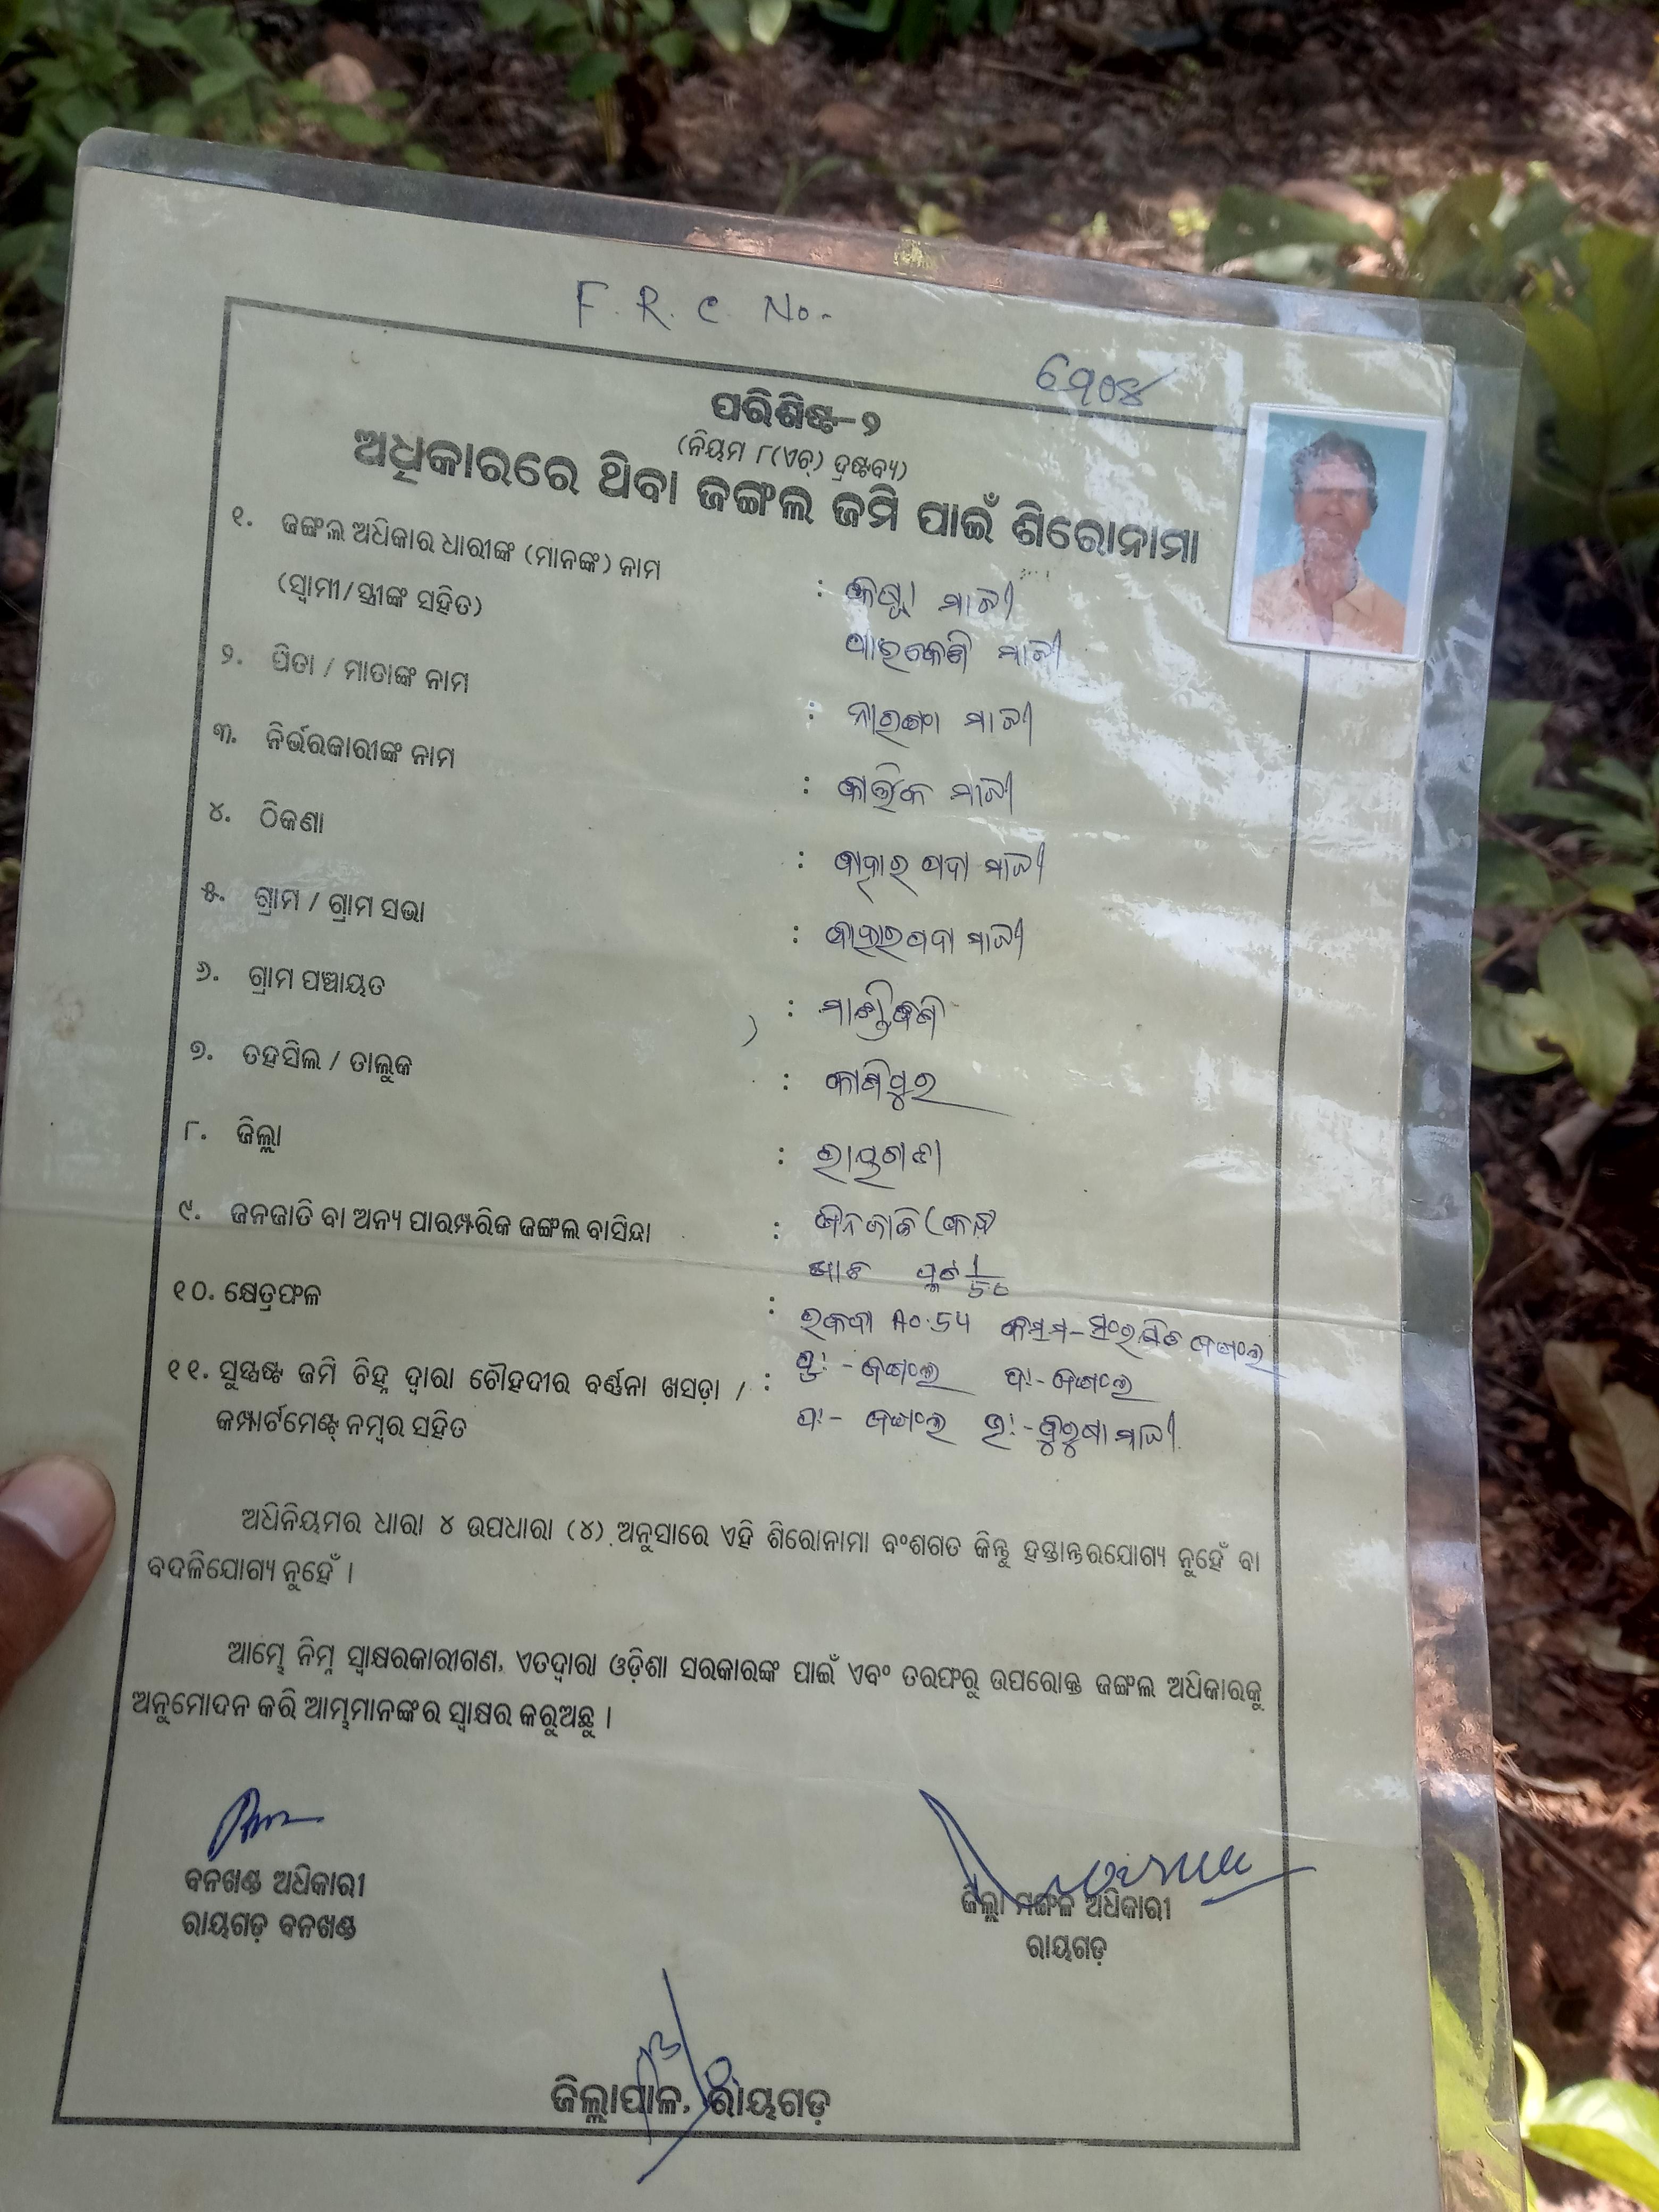 F. R. C. No.
ପରିଶିଷ୍ଟ-୨
(ନିୟମ ୮(ଏଚ୍) ଦ୍ରଷ୍ଟବ୍ୟ)
ଅଧିକାରରେ ଥିବା ଜଙ୍ଗଲ ଜମି ପାଇଁ ଶିରୋନାମା
୧. ଜଙ୍ଗଲ ଅଧିକାର ଧାରୀଙ୍କ (ମାନଙ୍କ) ନାମ
(ସ୍ୱାମୀ/ସ୍ତ୍ରୀଙ୍କ ସହିତ) : ମାଝୀ
ମାଝୀ
୨. ପିତା / ମାତାଙ୍କ ନାମ : ମାଝୀ
୩. ନିର୍ଭରକାରୀଙ୍କ ନାମ : କାର୍ତ୍ତିକ ମାଝୀ
୪. ଠିକଣା :
୫. ଗ୍ରାମ / ଗ୍ରାମ ସଭା :
୬. ଗ୍ରାମ ପଞ୍ଚାୟତ :
୭. ତହସିଲ / ତାଲୁକ : କାଶିପୁର
୮. ଜିଲ୍ଲା : ରାୟଗଡା
୯. ଜନଜାତି ବା ଅନ୍ୟ ପାରମ୍ପରିକ ଜଙ୍ଗଲ ବାସିନ୍ଦା : ଜନଜାତି (କନ୍ଧ
ପ୍ଲଟ
୧୦. କ୍ଷେତ୍ରଫଳ : ରକବା A0.54 କିସମ-ସଂରକ୍ଷିତ ଜଙ୍ଗଲ
୧୧. ସୁସ୍ପଷ୍ଟ ଜମି ଚିହ୍ନ ଦ୍ୱାରା ଚୌହଦୀର ବର୍ଣ୍ଣନା ଖସଡ଼ା / : ପୁ:- ଜଙ୍ଗଲ ଦ:- ଜଙ୍ଗଲ
କମ୍ପାର୍ଟମେଣ୍ଟ୍ ନମ୍ବର ସହିତ ପ:- ଜଙ୍ଗଲ ଉ:- ମାଝୀ
ଅଧିନିୟମର ଧାରା ୪ ଉପଧାରା (୪) ଅନୁସାରେ ଏହି ଶିରୋନାମା ବଂଶଗତ କିନ୍ତୁ ହସ୍ତାନ୍ତରଯୋଗ୍ୟ ନୁହେଁ ବା
ବଦଳିଯୋଗ୍ୟ ନୁହେଁ ।
ଆମ୍ଭେ ନିମ୍ନ ସ୍ୱାକ୍ଷରକାରୀଗଣ, ଏତଦ୍ୱାରା ଓଡ଼ିଶା ସରକାରଙ୍କ ପାଇଁ ଏବଂ ତରଫରୁ ଉପରୋକ୍ତ ଜଙ୍ଗଲ ଅଧିକାରକୁ
ଅନୁମୋଦନ କରି ଆମ୍ଭମାନଙ୍କର ସ୍ୱାକ୍ଷର କରୁଅଛୁ ।
ବନଖଣ୍ଡ ଅଧିକାରୀ
ରାୟଗଡ଼ ବନଖଣ୍ଡ
ଜିଲ୍ଲା ମଙ୍ଗଳ ଅଧିକାରୀ
ରାୟଗଡ଼
ଜିଲ୍ଲାପାଳ, ରାୟଗଡ଼